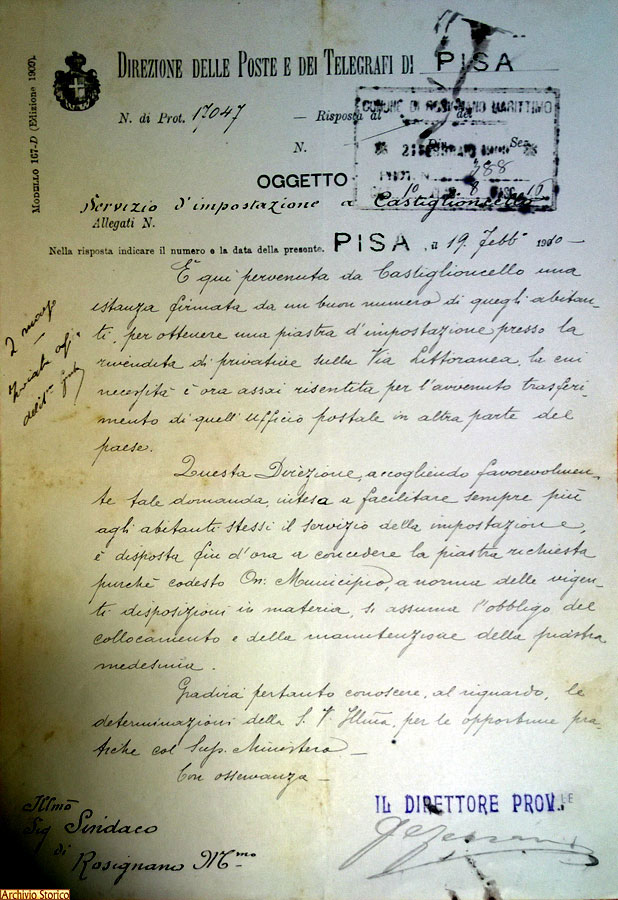 DIREZIONE DELLE POSTE E DEI TELEGRAFI DI PISA
MODULO 167-D (Edizione 1909).
N. di Prot. 17047 — Risposta al del
N. Div. Sez.
COMUNE DI ROSIGNANO MARITTIMO
388
10 8 16
OGGETTO
Servizio d'impostazione a Castiglioncello
Allegati N.
Nella risposta indicare il numero e la data della presente. PISA, a 19. Febb° 1910—
È qui pervenuta da Castiglioncello una
istanza firmata da un buon numero di quegli abitan-
ti, per ottenere una piastra d'impostazione presso la
rivendita di privative sulla Via Littoranea, la cui
necessità è ora assai risentita per l'avvenuto trasferi-
mento di quell'Ufficio postale in altra parte del
paese.
2 marzo
Questa Direzione, accogliendo favorevolmen-
te tale domanda, intesa a facilitare sempre più
agli abitanti stessi il servizio della impostazione,
è disposta fin d'ora a concedere la piastra richiesta
purchè codesto On: Municipio, a norma delle vigen-
ti disposizioni in materia, si assuma l'obbligo del
collocamento e della manutenzione della piastra
medesima.
Gradirà pertanto conoscere, al riguardo, le
determinazioni della S. V. Illma, per le opportune pra-
tiche col Sup. Ministero—
Con osservanza—
Illmo
Sig. Sindaco
di
Rosignano Mmo
IL DIRETTORE PROV.LE
Archivio Storico